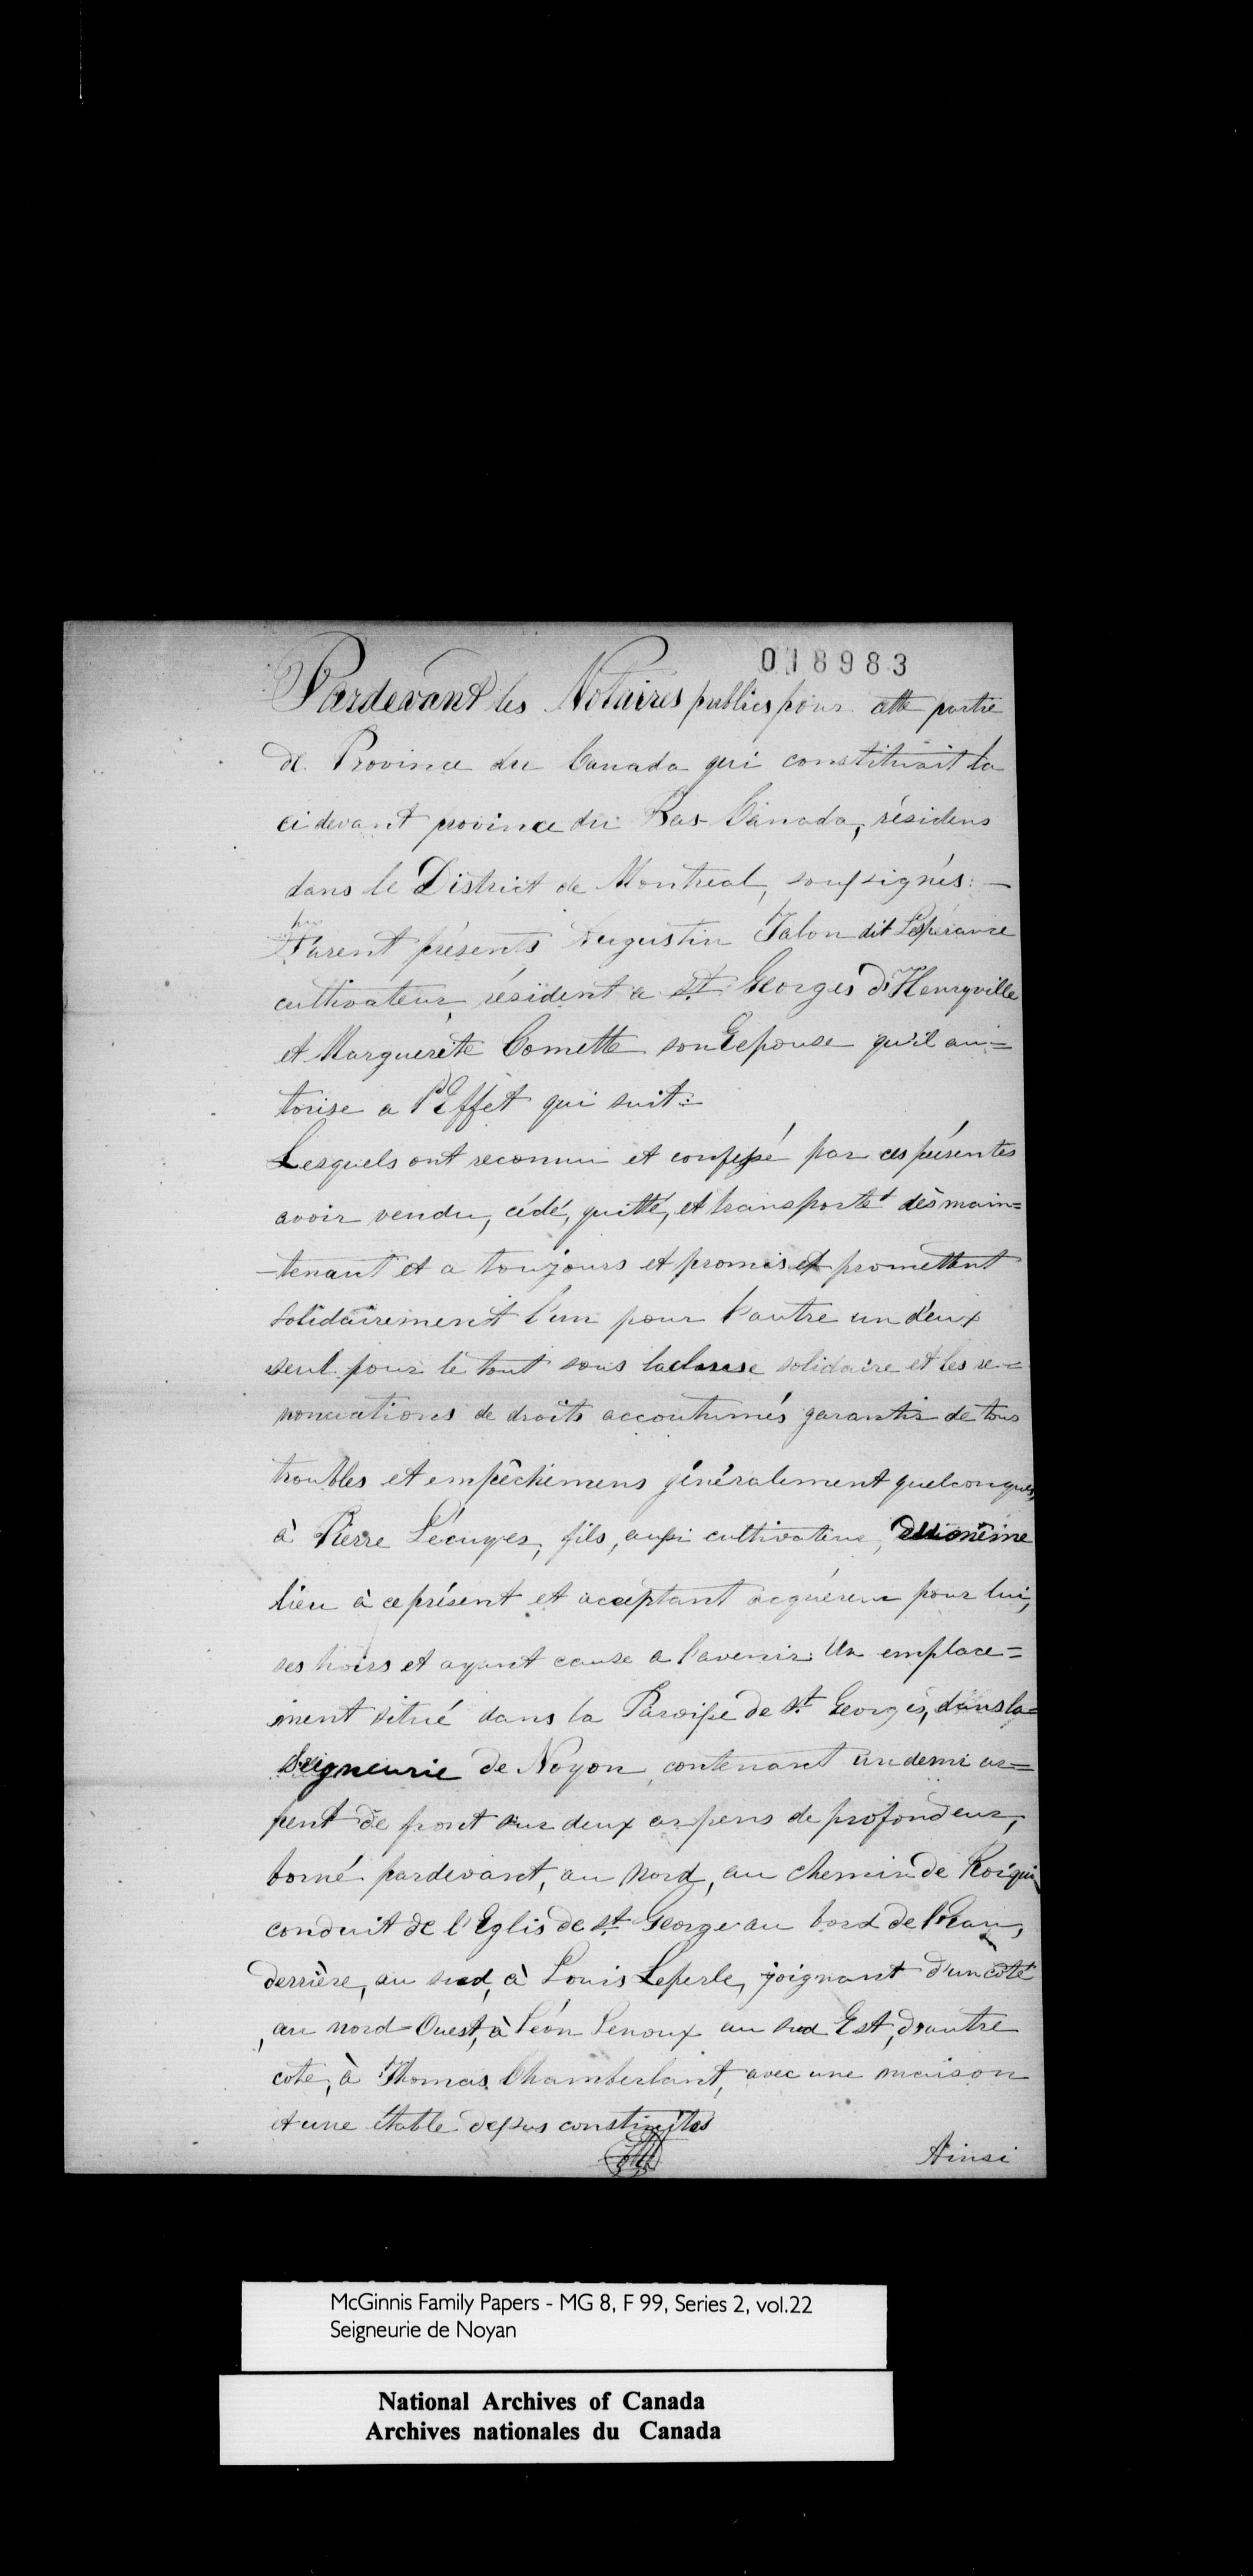 018983
Pardevant les Notaires publics pour cette partie
de Province du Canada qui constituait la
ci devant province du Bas-Canada, résidens
dans le District de Montreal, soussignés:—
Furent présents Augustin Jalon dit Lespérance
cultivateur, résident a St. Georges d'Henryville
et Marguerite Comette son Epouse qu'il au=
torise a l'Effet qui suit:
Lesquels ont reconnu et confessé par ces présentes
avoir vendu, cédé, quitté, et transporté dès main=
-tenant et a toujours et promis et promettent
solidairement l'un pour l'autre un d'eux
seul pour le tout sous la clause solidaire et les re-=
nonciations de droits accoutumés garantir de tous
troubles et empêchemens généralement quelconques,
à Pierre Lécuyer, fils, aussi cultivateur, du même
lieu à ce présent et acceptant acquéreur pour lui,
ses hoirs et ayant cause a l'avenir: Un emplace=
ment situé dans la Paroisse de St. Georges, dans la=
Seigneurie de Noyon, contenant un demi ar=
pent de front sur deux arpens de profondeur,
borné pardevant, au Nord, au Chemin de Roi qui
conduit de l'Eglis de St. George au bord de l'Eau,
derrière, au sud, à Louis Leperle, joignant d'un côté
, au nord-Ouest, à Léon Lenoux au sud Est, d'autre
cote, à Thomas Chamberlant, avec une maison
et une étable dessus construites
Ainsi
McGinnis Family Papers - MG 8, F 99, Series 2, vol.22
Seigneurie de Noyan
National Archives of Canada
Archives nationales du Canada